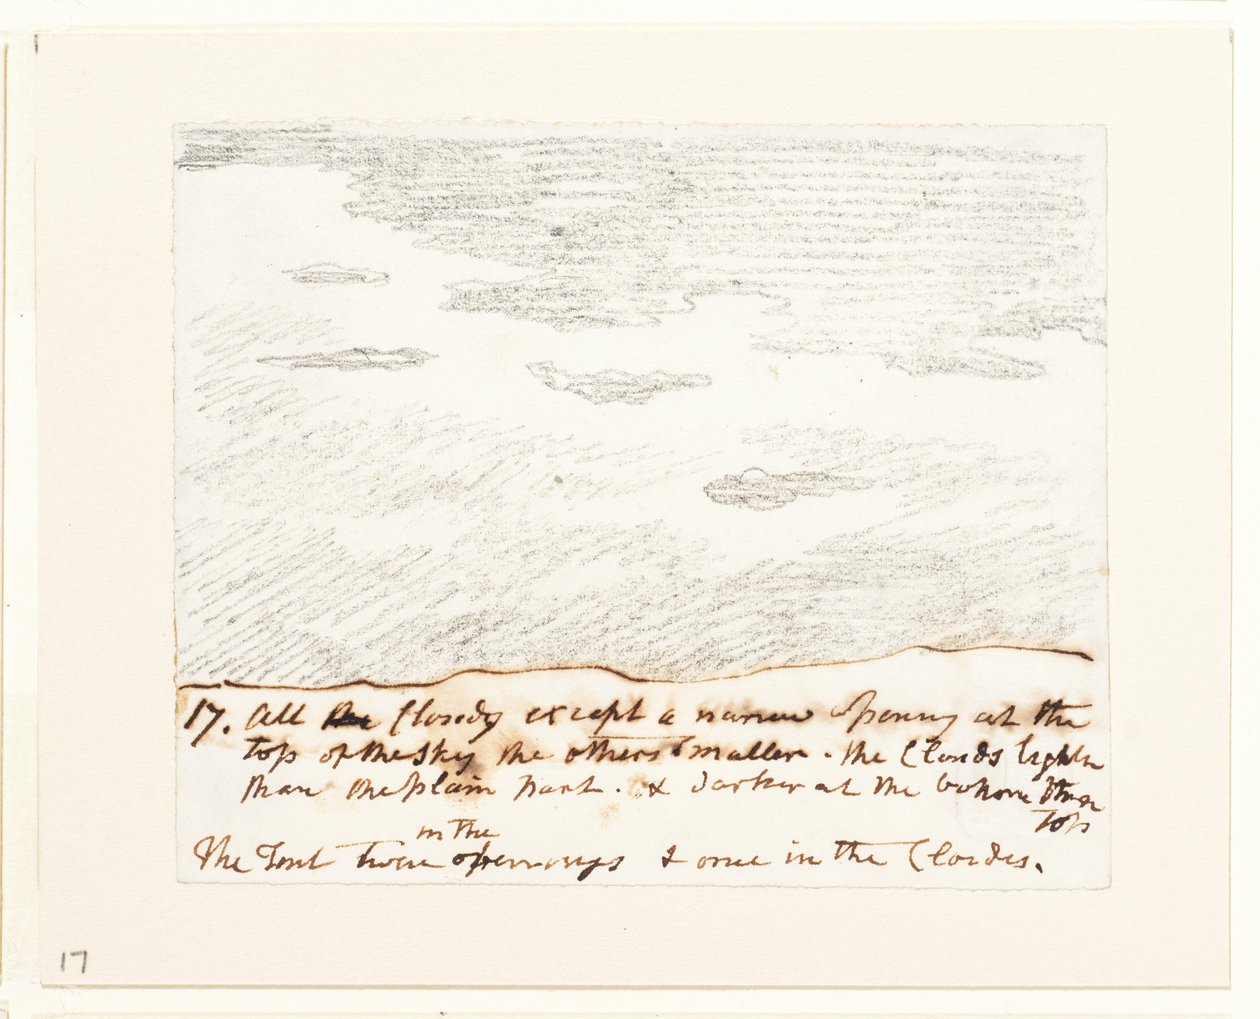 17. All the Cloudy except a narrow opening at the
top of the sky the others smaller. the Clouds lighter
than the plain part. & darker at the bottom than
top
in the
The Tint twice openings & once in the Clouds.
17